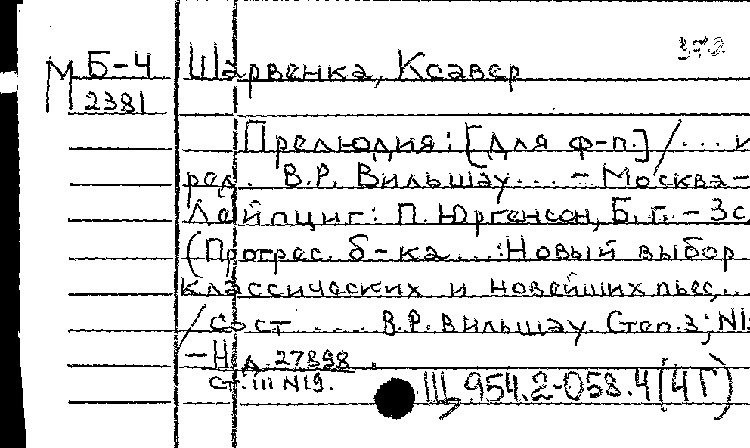 372
М Б-4 Шарвенка, Ксавер
2381
Прелюдия: [Для ф-п.] / ... и
ред. В.Р. Вильшау... - Москва -
Лейпциг: П. Юргенсон, Б.г. - 3с
(Прогрес. б-ка...: Новый выбор
классических и новейших пьес...
/ сост ..... В.Р. Вильшау. Степ.3; N19
- Н.д. 27898.
Ст. III N19.
Щ 954.2-058.4(4Г)